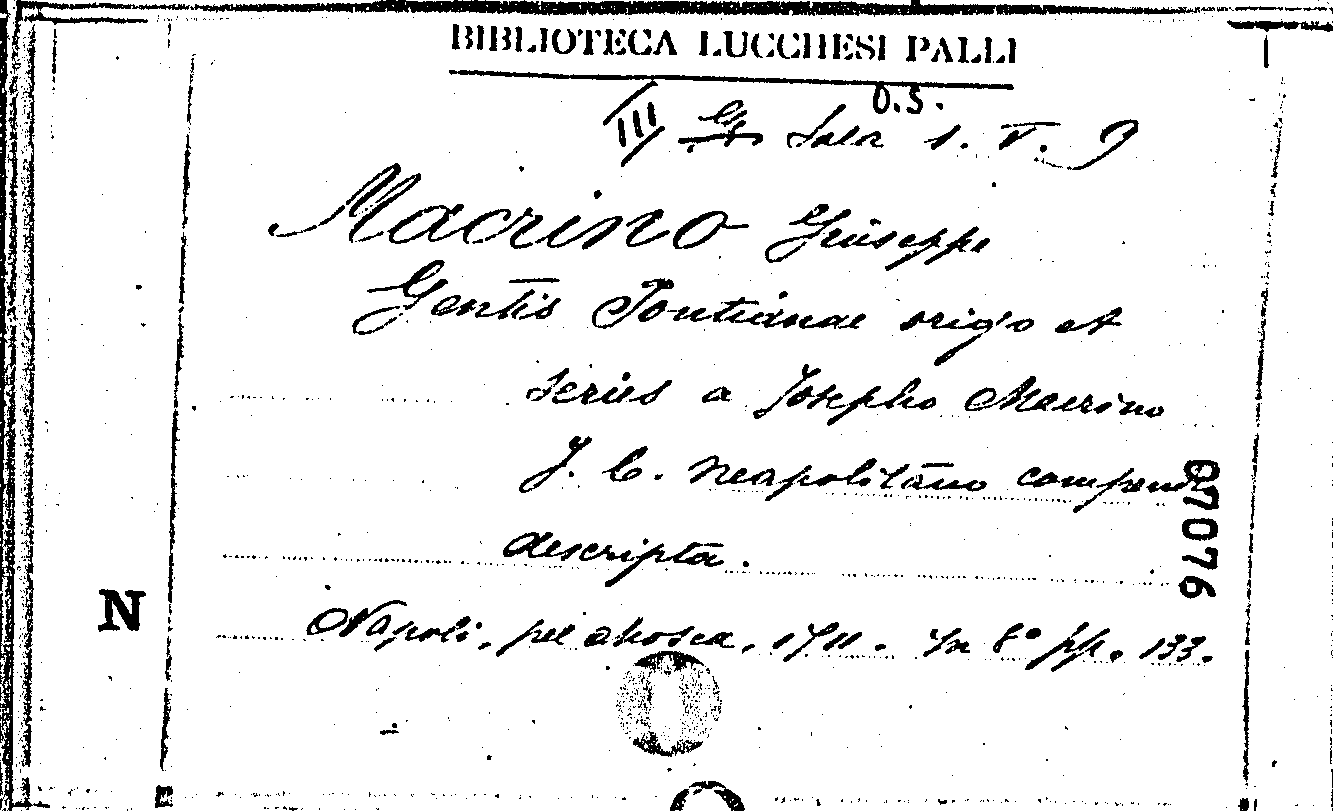 BIBLIOTECA LUCCHESI PALLI
O.S.
III Sala 1. V. 9
Macrino Giuseppe
Gentis Pontianae origo et
series a Josepho Macrino
J. C. neapolitano
descripta.
Napoli, pel Mosca, 1711. In 8° pp. 133.
07076
N